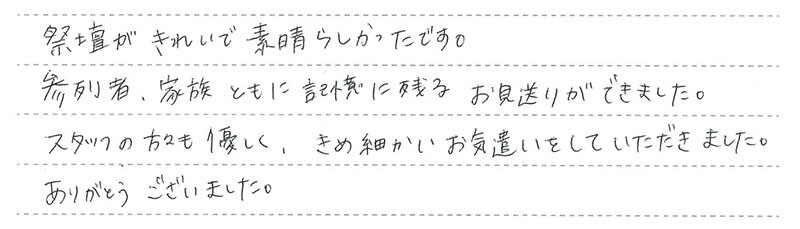 祭壇がきれいで素晴らしかったです。
参列者、家族ともに記憶に残るお見送りができました。
スタッフの方々も優しく、きめ細かいお気遣いをしていただきました。
ありがとうございました。